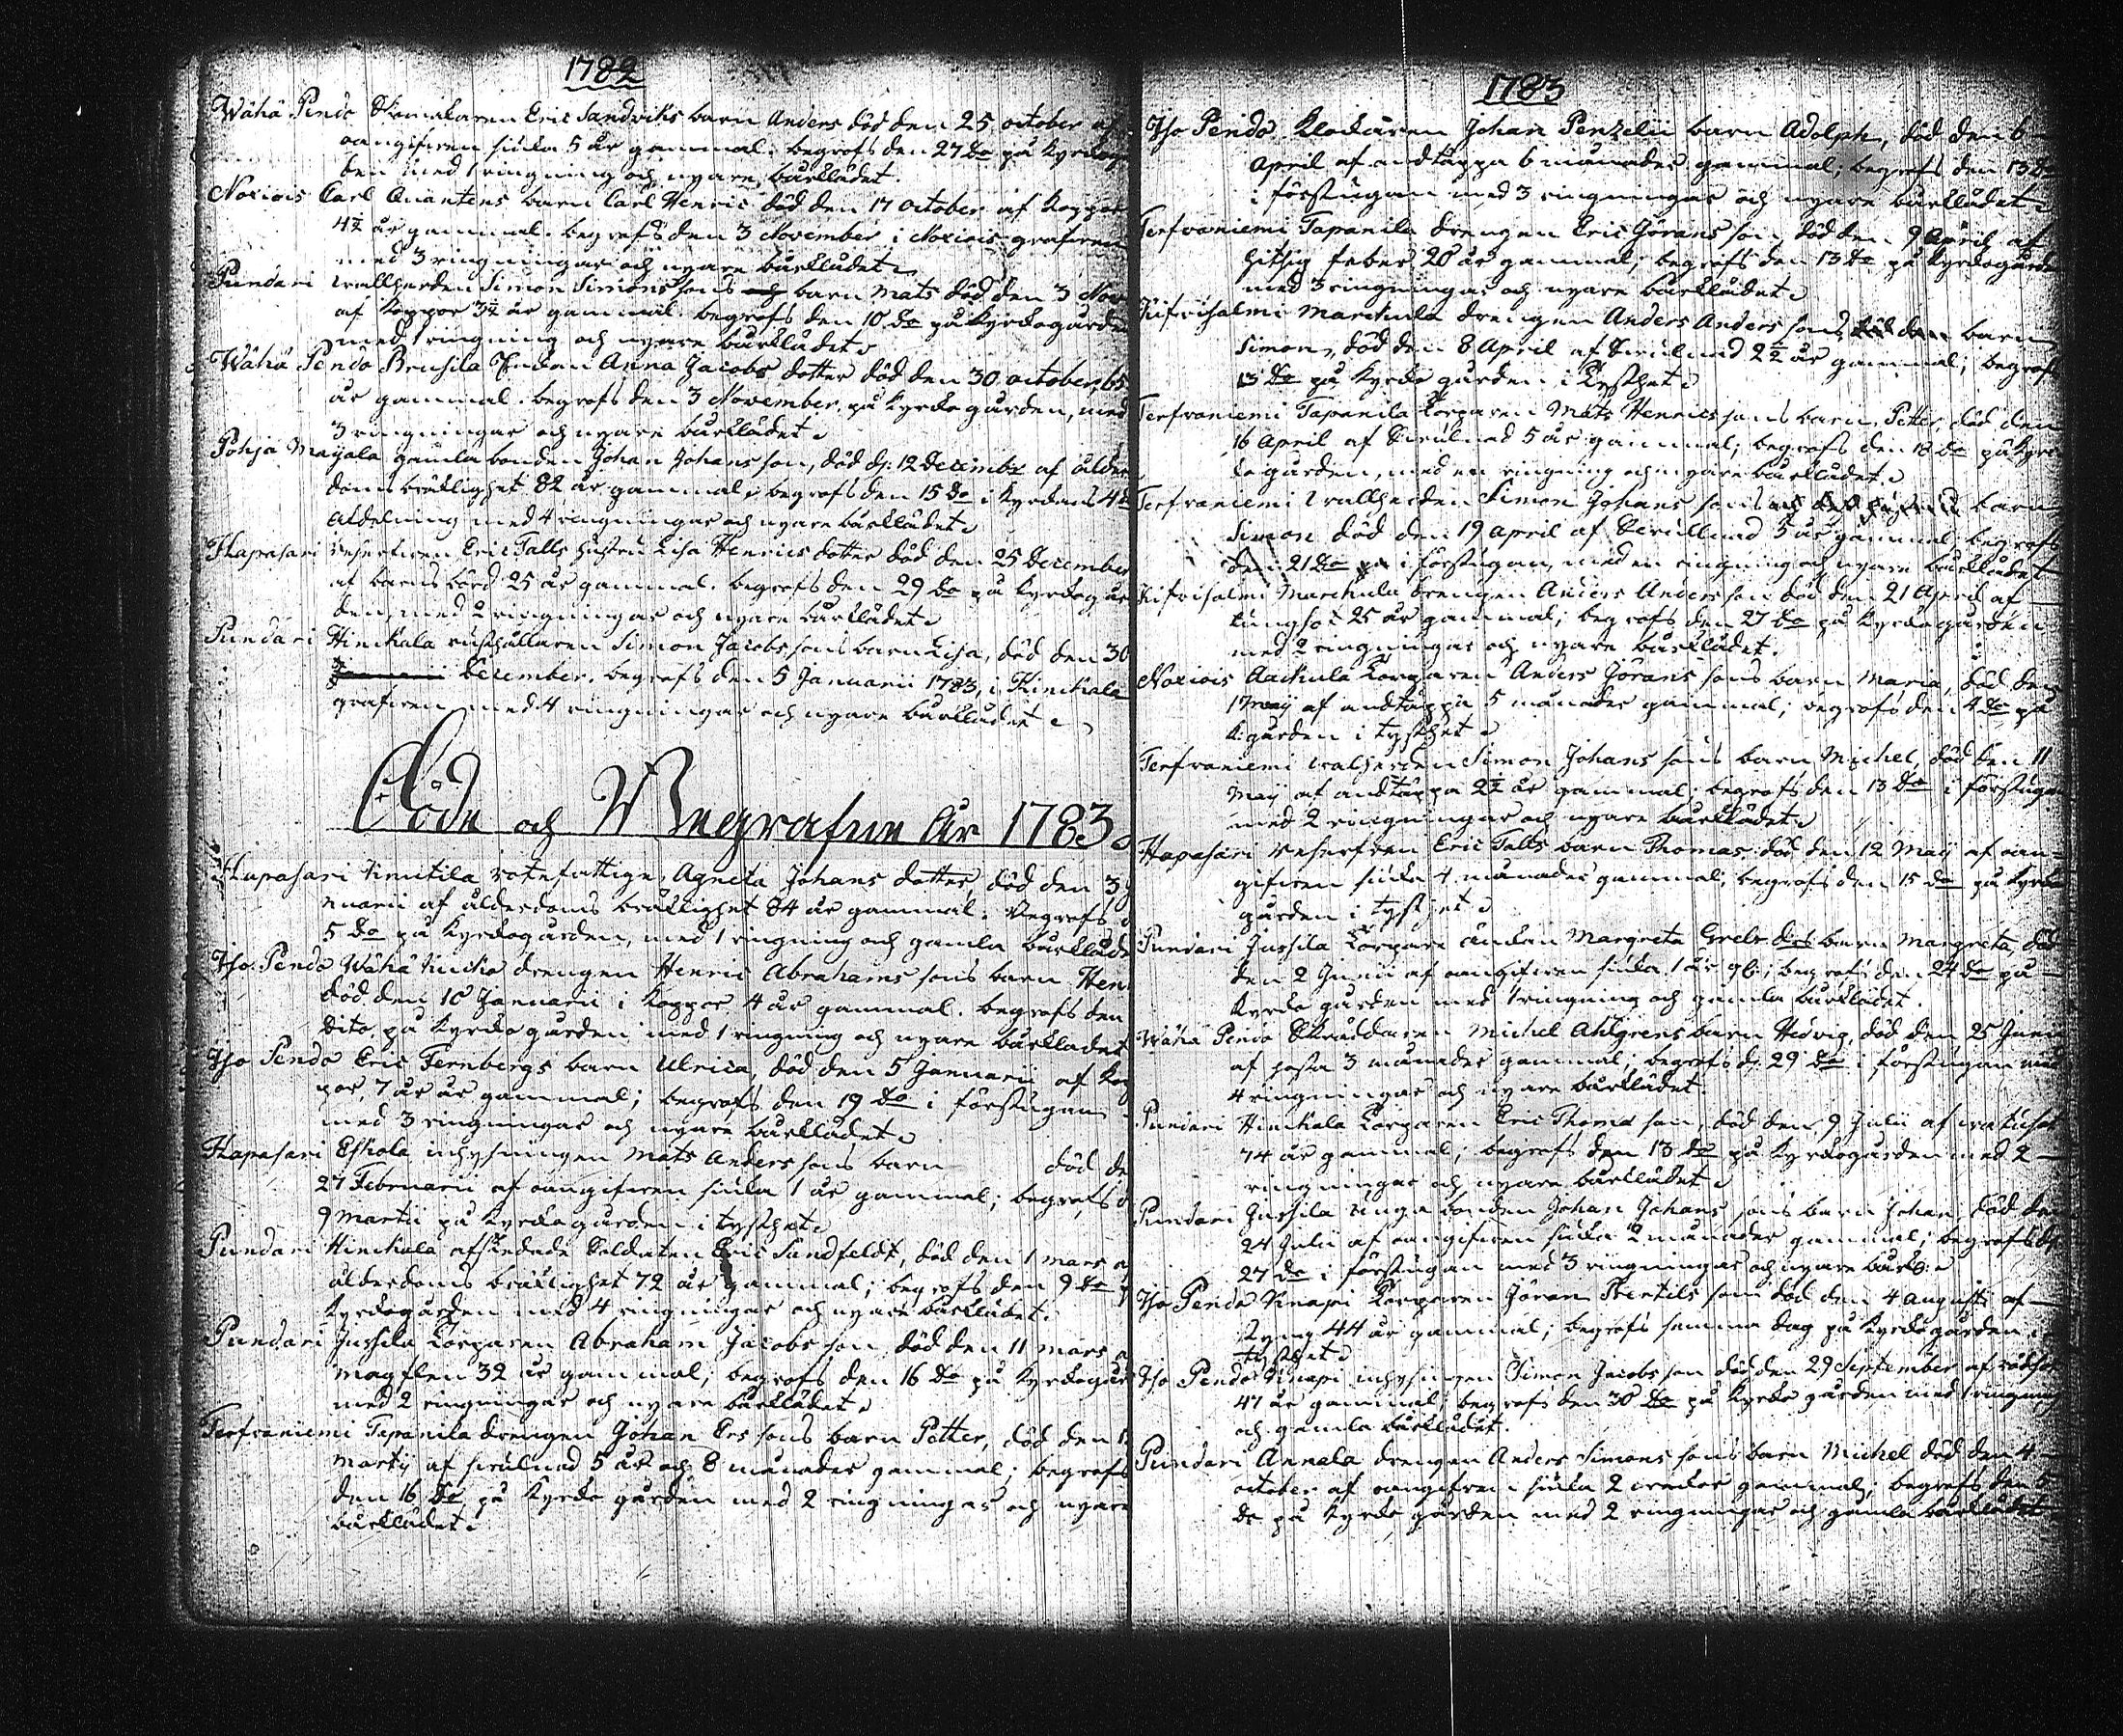 1782
Wähä Pendo Skomakaren Eric Sandviks barn Anders död den 25 october af
oangifven siuka 5 år gammal. begrofs den 27 do på Kyrkog
den med 1 ringning och nyare bårklädet.
Noxiois Carl Quantens barn Carl Henric död den 17 october af Koppor
4½ år gammal. begrofs den 3 November i Noxiois grafven
med 3 ringningar och nyare bårklädet
Pundari wallherden Simon Simons sons barn Mats död den 3 Nov
af Koppor 3½ år gammal. begrofs den 10 do på Kyrkogården
med 1 ringning och nyare bårklädet
Wähä Pendo Brusila Enkan Anna Jacobs dotter död den 30 october, 65
år gammal. begrofs den 3 November på Kyrkogården, med
3 ringningar och nyare bårklädet
Pohja Maijala gamla bonden Johan Johans son, död d. 12 Decembr af ålder
doms bräklighet 82 år gammal; begrofs den 15 do i Kyrkans 4
afdelning med 4 ringningar och nyare bårklädet
Hapasari Eric Talls hustru Lisa Henrics dotter död den 25 December
af barns börd 25 år gammal. begrofs den 29 do på Kyrkogår
den, med 2 ringningar och nyare bårklädet
Pundari Hinckala rusthållaren Simon Jacobs sons barn Lisa, död den 30
December. begrofs den 5 Januarii 1783, i Hinckala
grafven med 4 ringningar och nyare bårklädet
Döde och Begrafne År 1783
Hapasari Timitila rotefattige Agneta Johans dotter, död den 3 J
nuarii af ålderdoms bräklighet 84 år gammal. Begrofs d
5 do på Kyrkogården, med 1 ringning och gamla bårkläde
Iso Pendo Wähä drengen Henric Abrahams sons barn Hen
död den 10 Januarii i Koppor 4 år gammal. begrofs den
Dito på Kyrkogården med 1 ringning och nyare bårklädet
Iso Pendo Eric Fernbergs barn Ulrica, död den 5 Januarii af Kop
por, 7 år år gammal; begrofs den 19 do i förstugan
med 3 ringningar och nyare bårklädet
Hapasari Eskola inhysningen Mats Anders sons barn död de
27 Februarii af oangifven siuka 1 år gammal; begrofs d
9 Martii på Kyrkogården i tysthet
Pundari Hinckala afskedade Soldaten Eric Sandfeldt, död den 1 mars a
ålderdoms bräklighet 72 år gammal; begrofs den 9 do p
Kyrkogården med 4 ringningar och nyare bårklädet.
Pundari Jussila Torparen Abraham Jacobs son död den 11 mars a
32 år gammal; begrofs den 16 do på Kyrkogår
med 2 ringningar och nyare bårklädet
Terfvaniemi Tapanila drengen Johan Ers sons barn Petter, död den 1
Martij af 5 år och 8 månader gammal; begrofs
den 16 do på Kyrkogården med 2 ringningar och nyare
bårklädet
1783
Iso Pendo Klockaren Johan Penzelii barn Adolph, död den 6
April af andtäppa 6 månader gammal; begrofs den 13 do
i förstugan med 3 ringningar och nyare bårklädet
Terfvaniemi Tapanila drengen Eric Görans son död den 9 April af
hitsig feber 20 år gammal; begrofs den 13 do på Kyrkogården
med 3 ringningar och nyare bårklädet
Kifvisalmi Marckula drengen Anders Anders sons barn
Simon, död den 8 April af 2½ år gammal; begrofs
13 do på Kyrkogården i tysthet
Terfvaniemi Tapanila Torparen Mats Henrics sons barn Petter, död den
16 April af 5 år gammal; begrofs den 18 do på Kyrc
kogården, med en ringning och nyare bårklädet.
Terfvaniemi Wallherden Simon Johans sons barn
Simon död den 19 April af 5 år gammal begrofs
den 21 do i förstugan, med en ringning och nyare bårklädet
Kifvisalmi Marckula drengen Anders Anders son död den 21 April af
lungsot 25 år gammal; begrofs den 27 do på Kyrkogården
med 2 ringningar och nyare bårklädet.
Noxiois Aackula Torparen Anders Jörans sons barn Maria, död den
1 May af andtäppa 5 månader gammal; begrofs den 4 do på
K:gården i tysthet
Terfvaniemi walherden Simon Johans sons barn Michel, död den 11
May af andtäppa 2½ år gammal; begrofs den 13 do i förstugan
med 2 ringningar och nyare bårklädet
Hapasari Eric Talls barn Thomas död den 12 Maij af oan-
gifven siuka 4 månader gammal; begrofs den 15 do på Kyrko
gården i tysthet
Pundari Jussila Torpare änkan Margreta Grels dr barn Margreta, död
den 2 Junii af oangifven siuka 1 år gl:; begrofs den 24 do på
Kyrkogården med 1 ringning och gamla bårklädet.
Wähä Pendo Skräddaren Michel Ahlgrens barn Hedvig, död den 25 Junii
af hosta 3 månader gammal; begrofs d. 29 do i förstugan med
4 ringningar och nyare bårklädet.
Pundari Hinckala Torparen Eric Thomæ son, död den 9 Julii af watusot
74 år gammal; begrofs den 13 do på Kyrkogården med 2
ringningar och nyare bårklädet
Pundari Jussila unga bonden Johan Johans sons barn Johan död den
24 Julii af oangifven siuka 2 månader gammal; begrofs d.
27 do i förstugan med 3 ringningar och nyare bårk:
Iso Pendo Knapi Torparen Göran Bertils son död den 4 augusti af
styng 44 år gammal; begrofs samma dag på Kyrkogården i
tysthet
Iso Pendo Knapi inhysingen Simon Jacobs son död den 29 September af rödsot
47 år gammal; begrofs den 30 do på Kyrkogården med 1 ringning
och gamla bårklädet.
Pundari Annala drengen Anders Simons sons barn Michel död den 4
october af oangifven siuka 2 weckor gammal; begrofs den 5
do på Kyrkogården med 2 ringningar och gamla bårklädet